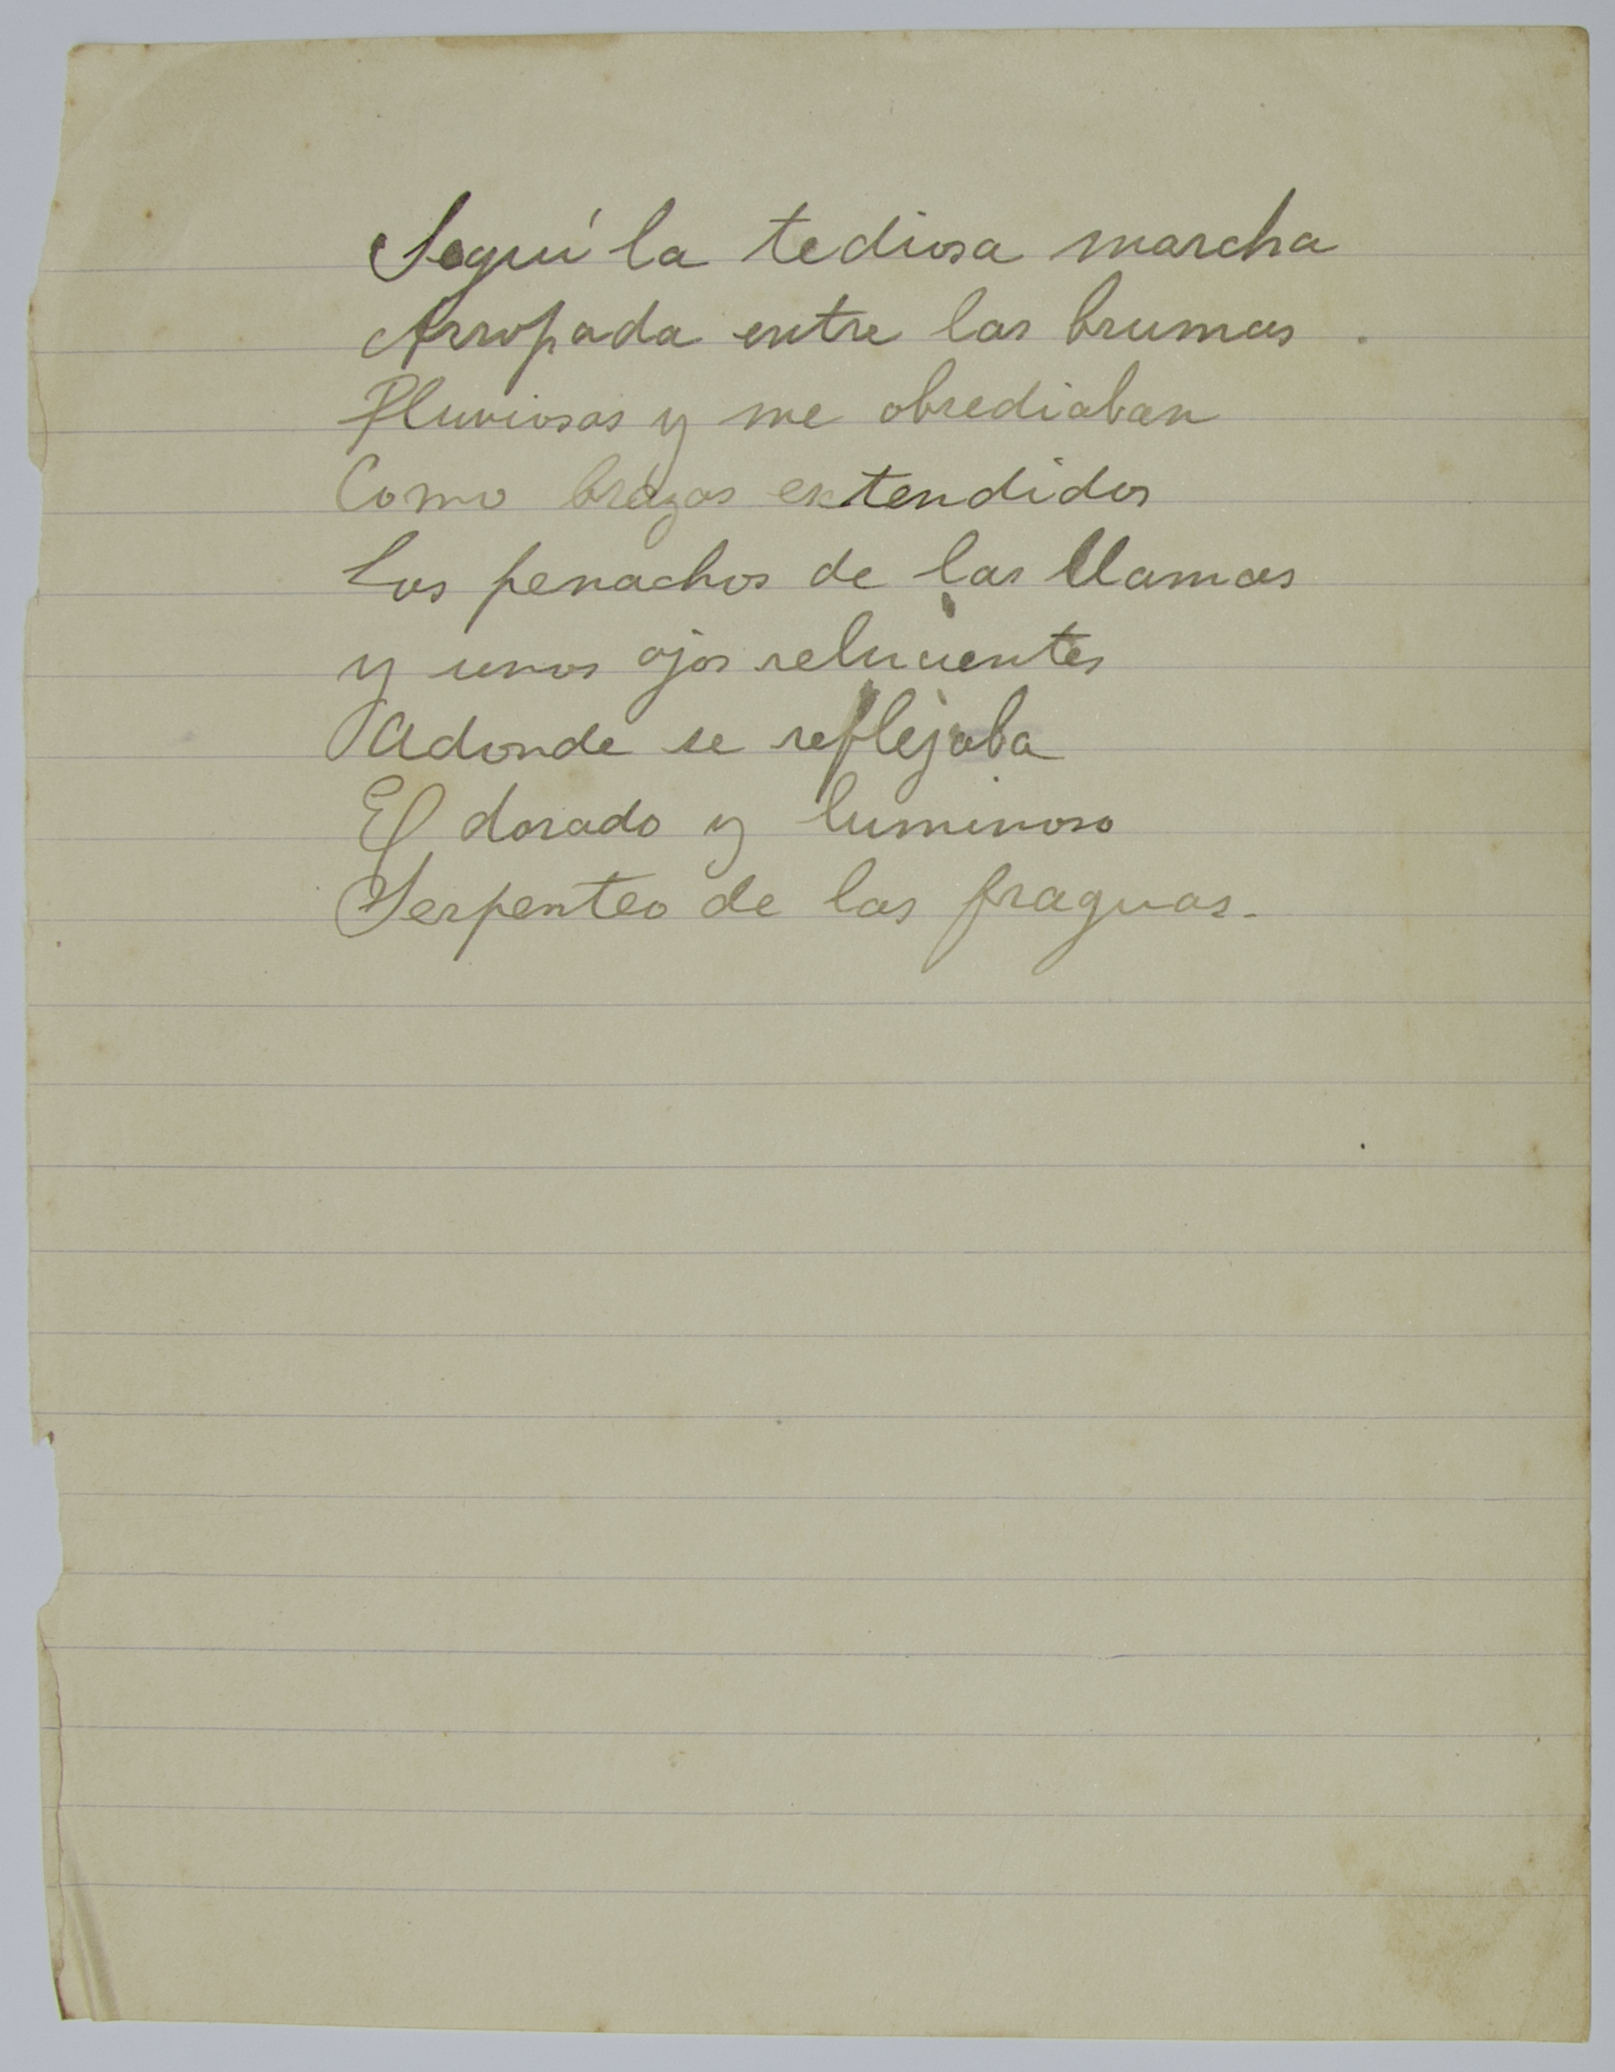 Seguí la tediosa marcha
Arropada entre las brumas
Pluviosas y me obsediaban
Como brazos extendidos
Los penachos de las llamas
y unos ojos relucientes
Adonde se reflejaba
El dorado y luminoso
Serpenteo de las fraguas.